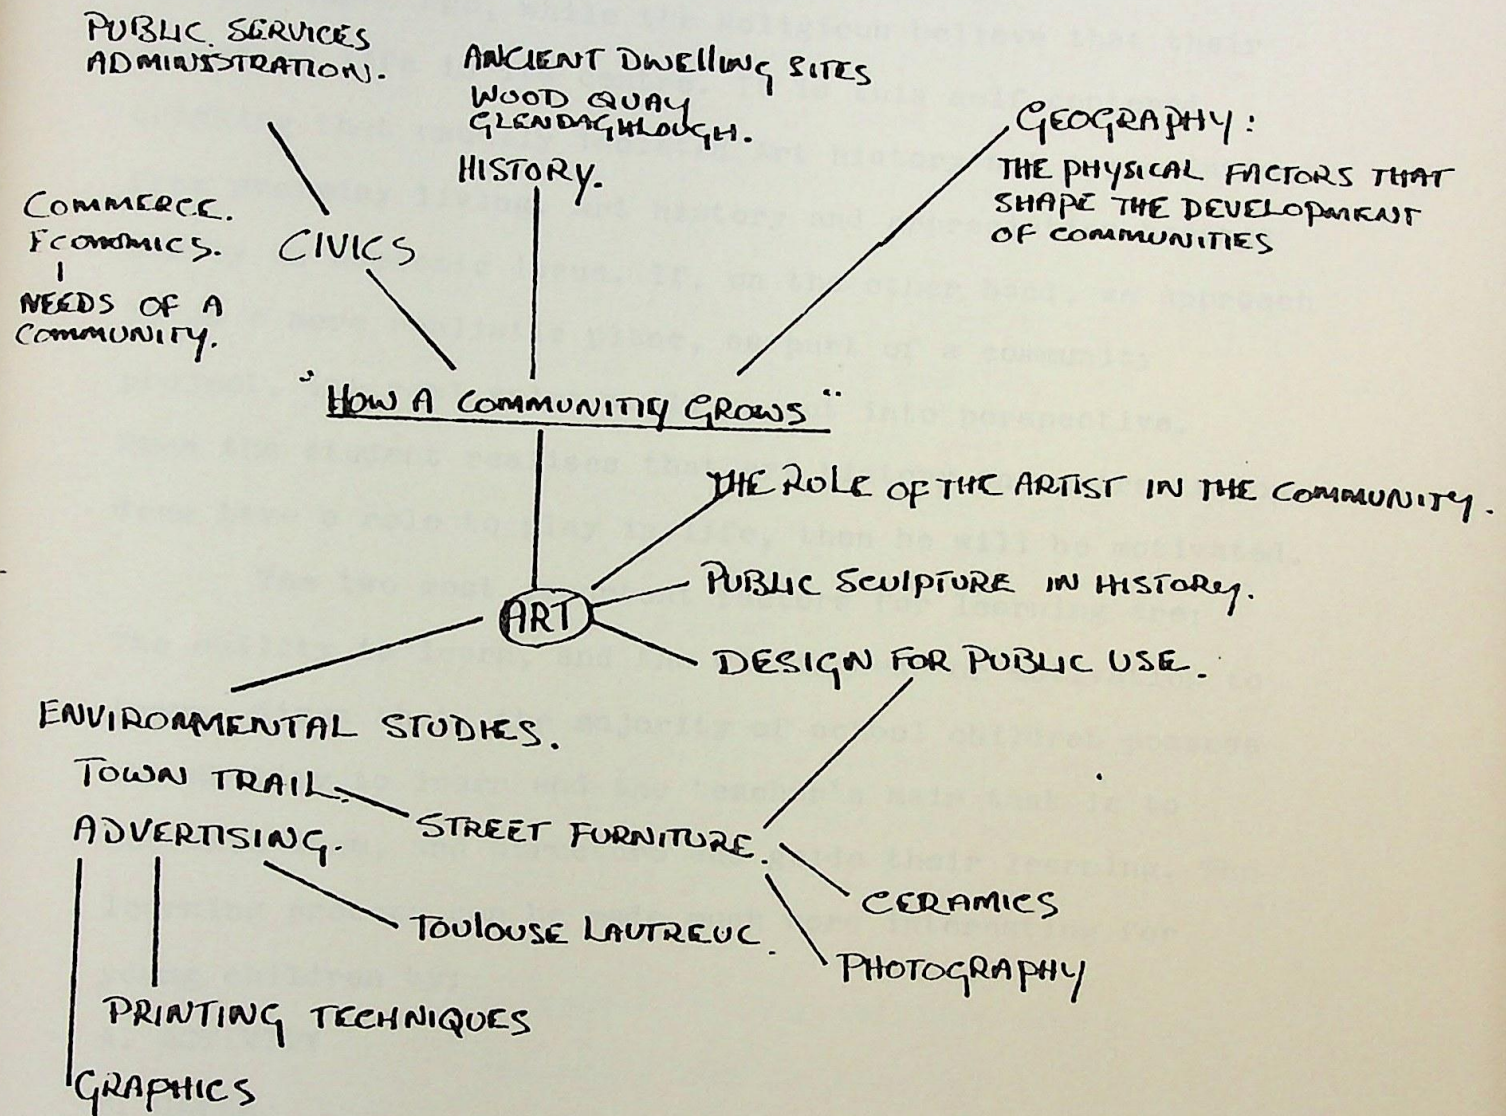 PUBLIC SERVICES
ADMINISTRATION.
ANCIENT DWELLING SITES
WOOD QUAY
GLENDAGHLOUGH.
HISTORY.
GEOGRAPHY:
THE PHYSICAL FACTORS THAT
SHAPE THE DEVELOPMENT
OF COMMUNITIES
COMMERCE.
ECONOMICS.
NEEDS OF A
COMMUNITY.
CIVICS
"HOW A COMMUNITIY GROWS"
THE ROLE OF THE ARTIST IN THE COMMUNITY.
ART
PUBLIC SCULPTURE IN HISTORY.
DESIGN FOR PUBLIC USE.
ENVIRONMENTAL STUDIES.
TOWN TRAIL.
ADVERTISING.
STREET FURNITURE.
CERAMICS
TOULOUSE LAUTREUC.
PHOTOGRAPHY
PRINTING TECHNIQUES
GRAPHICS